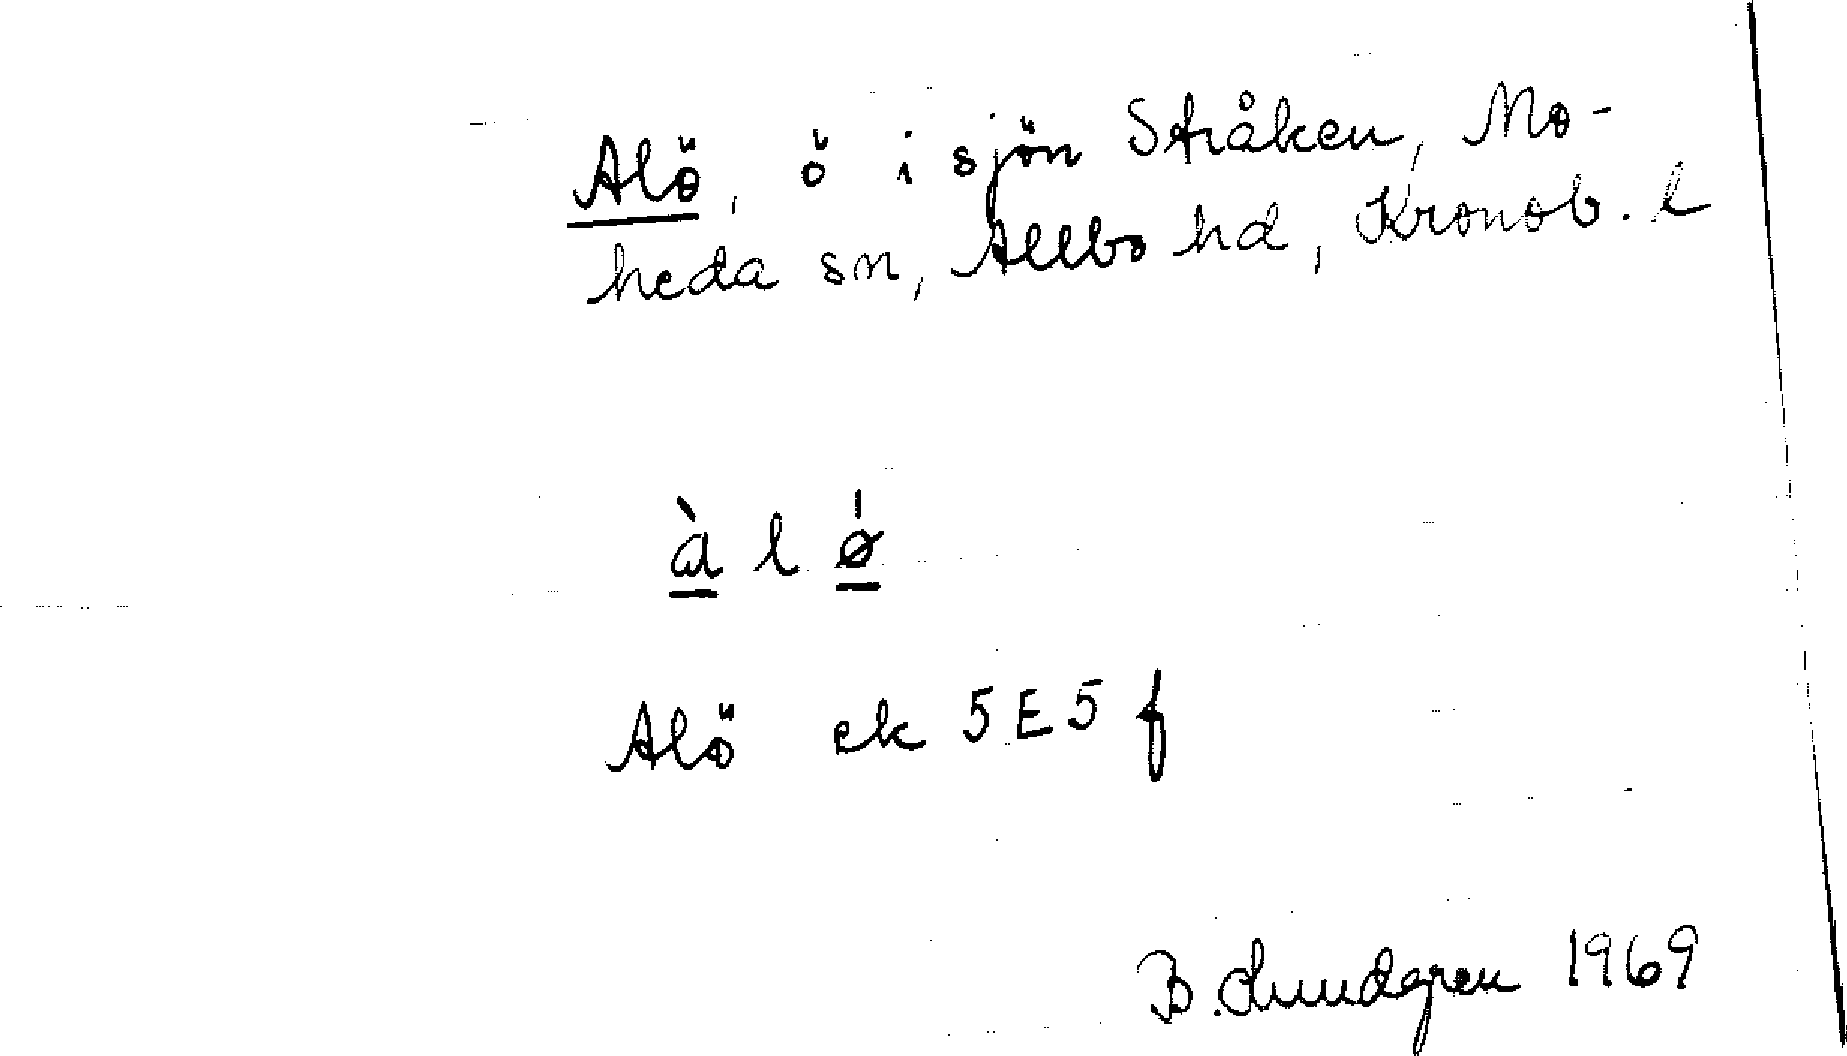 Alö, ö i sjön Stråken, Mo-
heda sn, Allbo hd, Kronob. l
à l ǿ
Alö ek 5E5f
B. Lundgren 1969